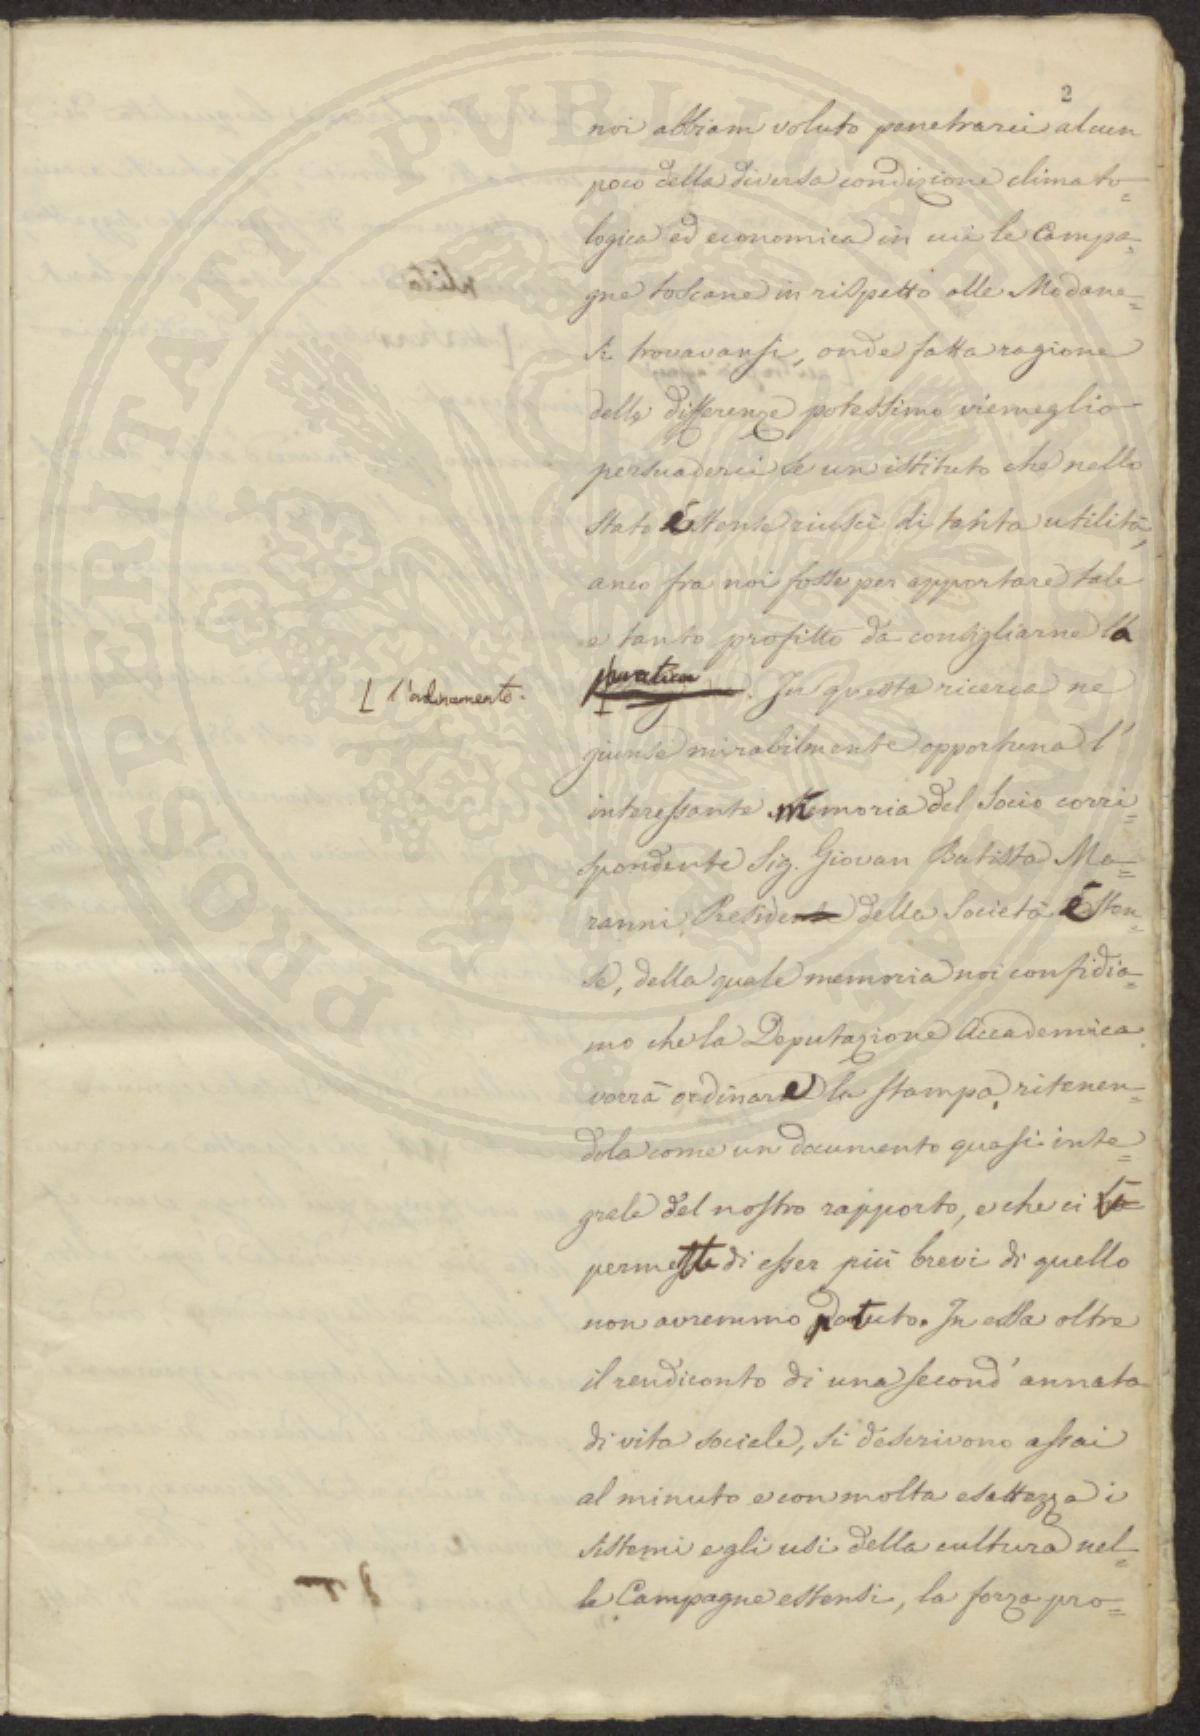 2
noi abbiam voluto penetrarci alcun
poco della diversa condizione climato=
logica ed economica in cui le Campa=
gne toscane in rispetto alle Modane=
si trovavansi, onde fatta ragione
delle differenze potessimo viemeglio
persuaderci se un istituto che nello
stato Estense riuscì di tanta utilità,
anco fra noi fosse per apportare tale
e tanto profitto da consigliarne l'a
pratica. In questa ricerca ne
[ l'ordinamento.
giunse mirabilmente opportuna l'
interessante memoria del Socio corri=
spondente Sig. Giovan Batista Ma=
ranni Presidente della Società Esten=
se, della quale memoria noi confidia=
mo che la Deputazione Accademica
vorrà ordinare la stampa, ritenen=
dola come un documento quasi inte=
grale del nostro rapporto, e che ci
permette di esser più brevi di quello
non avremmo potuto. In essa oltre
il rendiconto di una second' annata
di vita sociale, si descrivono assai
al minuto e con molta esattezza i
sistemi e gli usi della cultura nel=
le Campagne estensi, la forza pro=
PROSPERITATI PUBLICAE